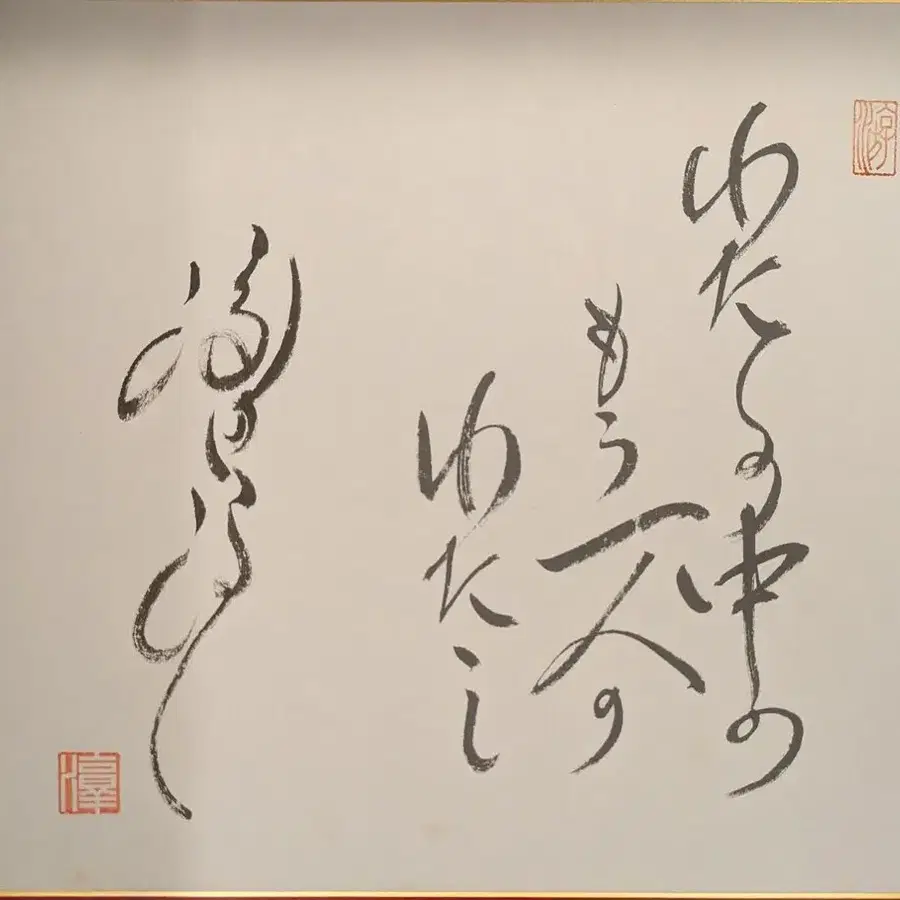 わたしの中の
もう一人の
わたし